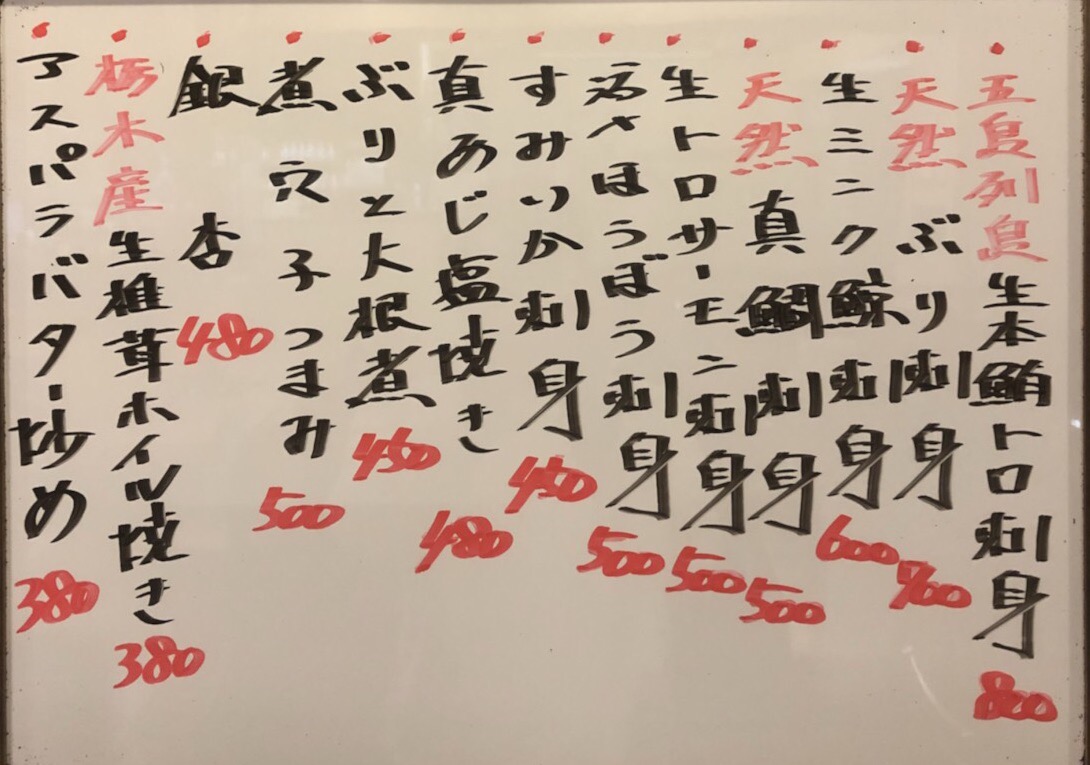 五島列島生本鮪トロ刺身 800
天然ぶり刺身 700
生ミンク鯨刺身 600
天然真鯛刺身 500
生トロサーモン刺身 500
活〆ほうぼう刺身 500
すみいか刺身 450
真あじ塩焼き 480
ぶりと大根煮 450
煮穴子つまみ 500
銀杏 480
栃木産生椎茸ホイル焼き 380
アスパラバター炒め 380